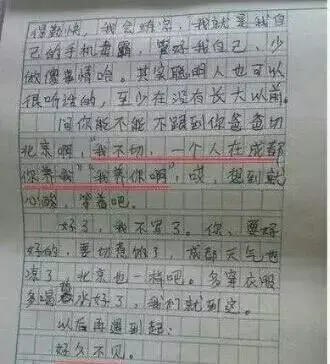 得勤快，我会难
己的手机壹霸，管好我自己，少
做傻事情哈。其实聪明人也可以
很听话的，至少在没有长大以前。
问你能不能不跟到你爸爸切
北京啊，“我不切，一个人在成都
你养我”“我养你啊”，哎，想到就
心酸，算着吧。
好了，我不写了。你，要好
好的，要切看你了，成都天气也
凉了，北京也一样吧。多穿衣服
多喝水好了，我们就到这。
以后再遇到起：
好久不见。